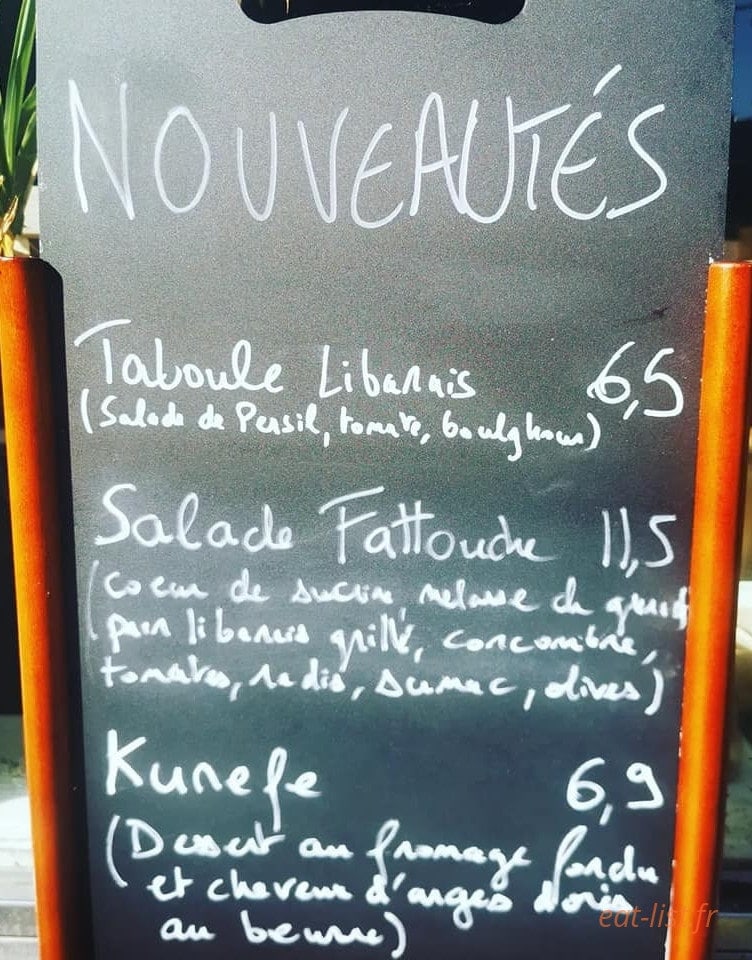 NOUVEAUTÉS
Taboule Libanais 6,5
(Salade de Persil, tomate, boulghour)
Salade Fattouche 11,5
(coeur de sucrine, melasse de
pain libanais grillé, concombre,
tomates, radis, sumac, olives)
Kunefe 6,9
(Dessert au fromage fondu
et cheveux d'anges dorés
au beurre)
eat-list.fr